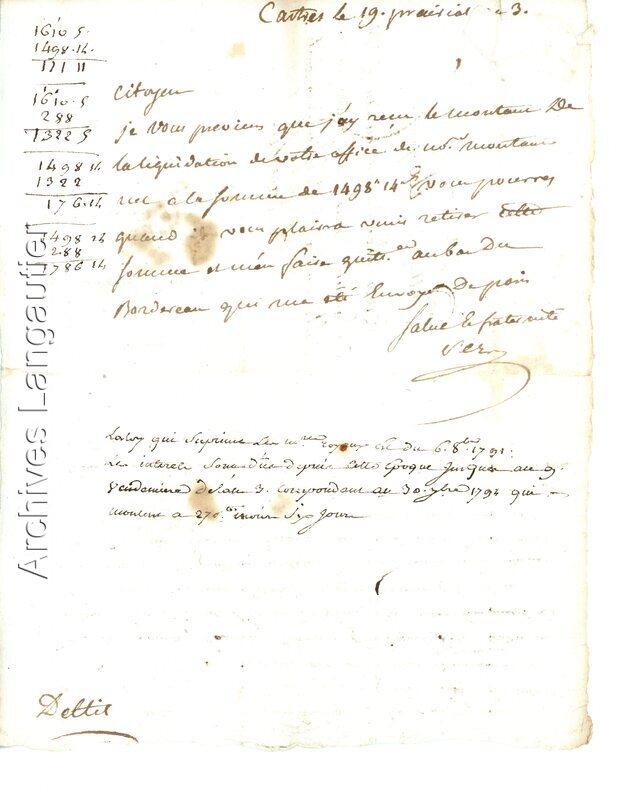 Castres le 19. prairial a 3.
1610.5
1498.14
1711 11
1610.5
288
1322 5
1498 14
1322
176.14
1498 14
288
1786 14
Citoyen
je vous previens que jay recu le montant De
la liquidation de votre office de not.re montant
net a la somme de 1498# 14s vous pourres
quand il vous plaira venir retirer cette
somme et m'en faire quitt.ce au bas du
Bordereau qui ma eté Envoyé De paris
Salut & fraternité
La loy qui suprime les royaux est du 6. 8bre 1791.
Les interets sont dus depuis cette Epoque jusques au 9.
Vendemiere de lan 3. correspondant au 30. 7bre 1794 qui
montent a 270.# moins six jours
Deltil
Archives Langautier